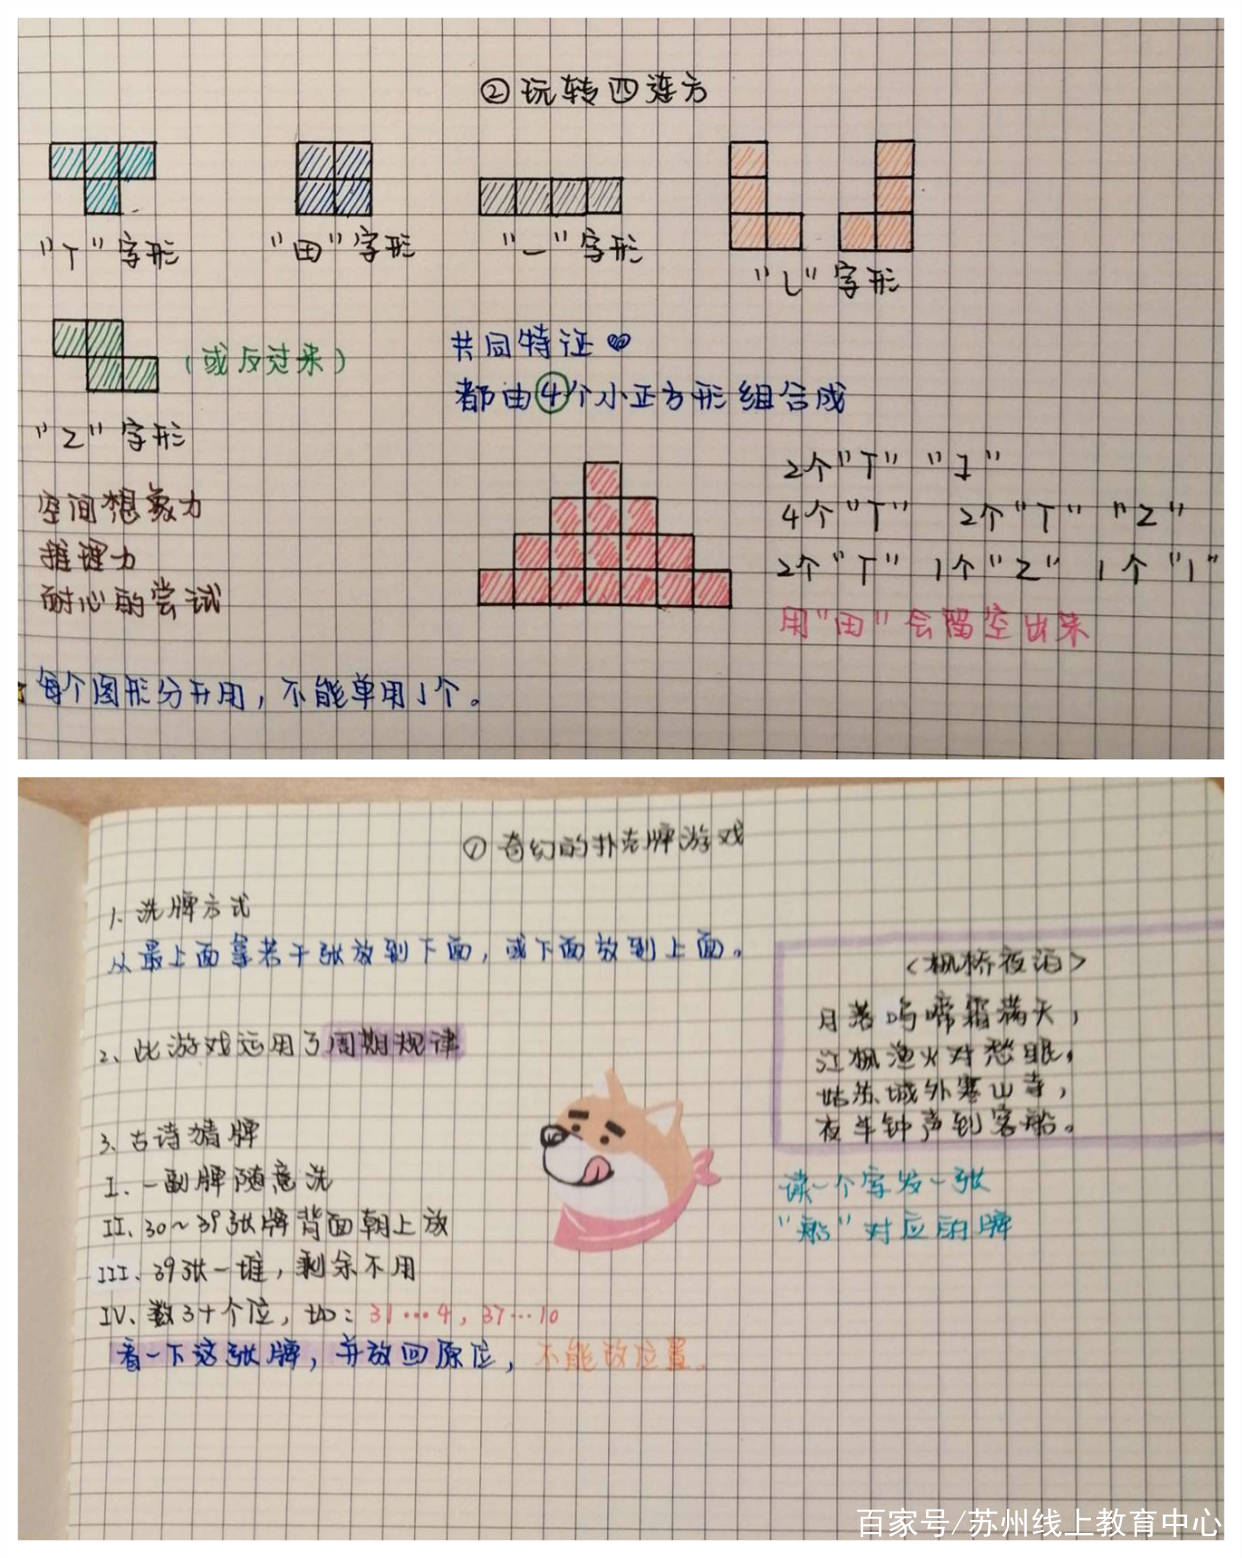 ②玩转四连方
"T"字形
"田"字形
"一"字形
"L"字形
(或反过来)
"Z"字形
共同特证
都由④个小正方形组合成
空间想象力
推理力
耐心的尝试
2个"T" "1"
4个"T" 2个"T" "Z"
2个"T" 1个"Z" 1个"1"
用"田"会留空出来
每个图形分开用,不能单用1个。
①奇幻的扑克牌游戏
1、洗牌方式
从最上面拿若干张放到下面,或下面放到上面。
2、此游戏运用了周期规律
3、古诗猜牌
I、一副牌随意洗
II、30~39张牌背面朝上放
III、39张一堆,剩余不用
IV、数3+个位,如:31…4,37…10
看一下这张牌,并放回原位,不能改位置。
<枫桥夜泊>
月落乌啼霜满天,
江枫渔火对愁眠。
姑苏城外寒山寺,
夜半钟声到客船。
读一个字发一张
"船"对应的牌
百家号/苏州线上教育中心